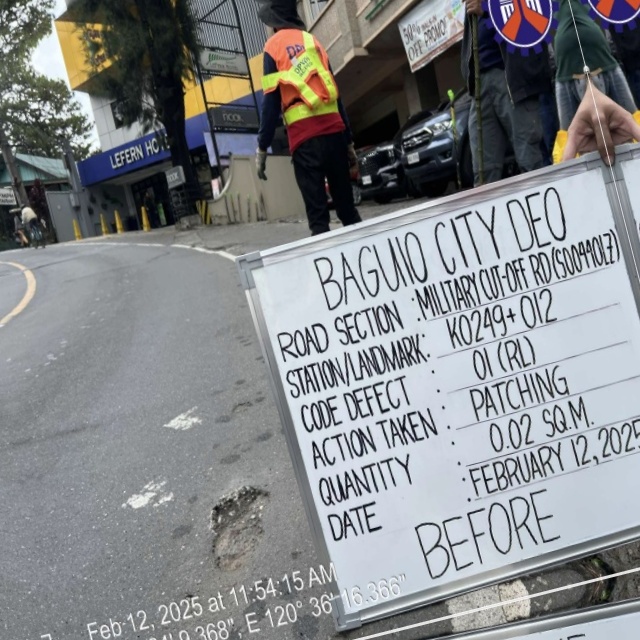 LEFERN HO
50%
OFF PROMO!
BAGUIO CITY DEO
ROAD SECTION : MILITARY CUT-OFF RD (S00940LZ)
STATION/LANDMARK: K0249+012
CODE DEFECT : 01 (RL)
ACTION TAKEN : PATCHING
QUANTITY : 0.02 SQ.M.
DATE : FEBRUARY 12, 2025
BEFORE
Feb 12, 2025 at 11:54:15 AM
9.368", E 120° 36' 16.366"